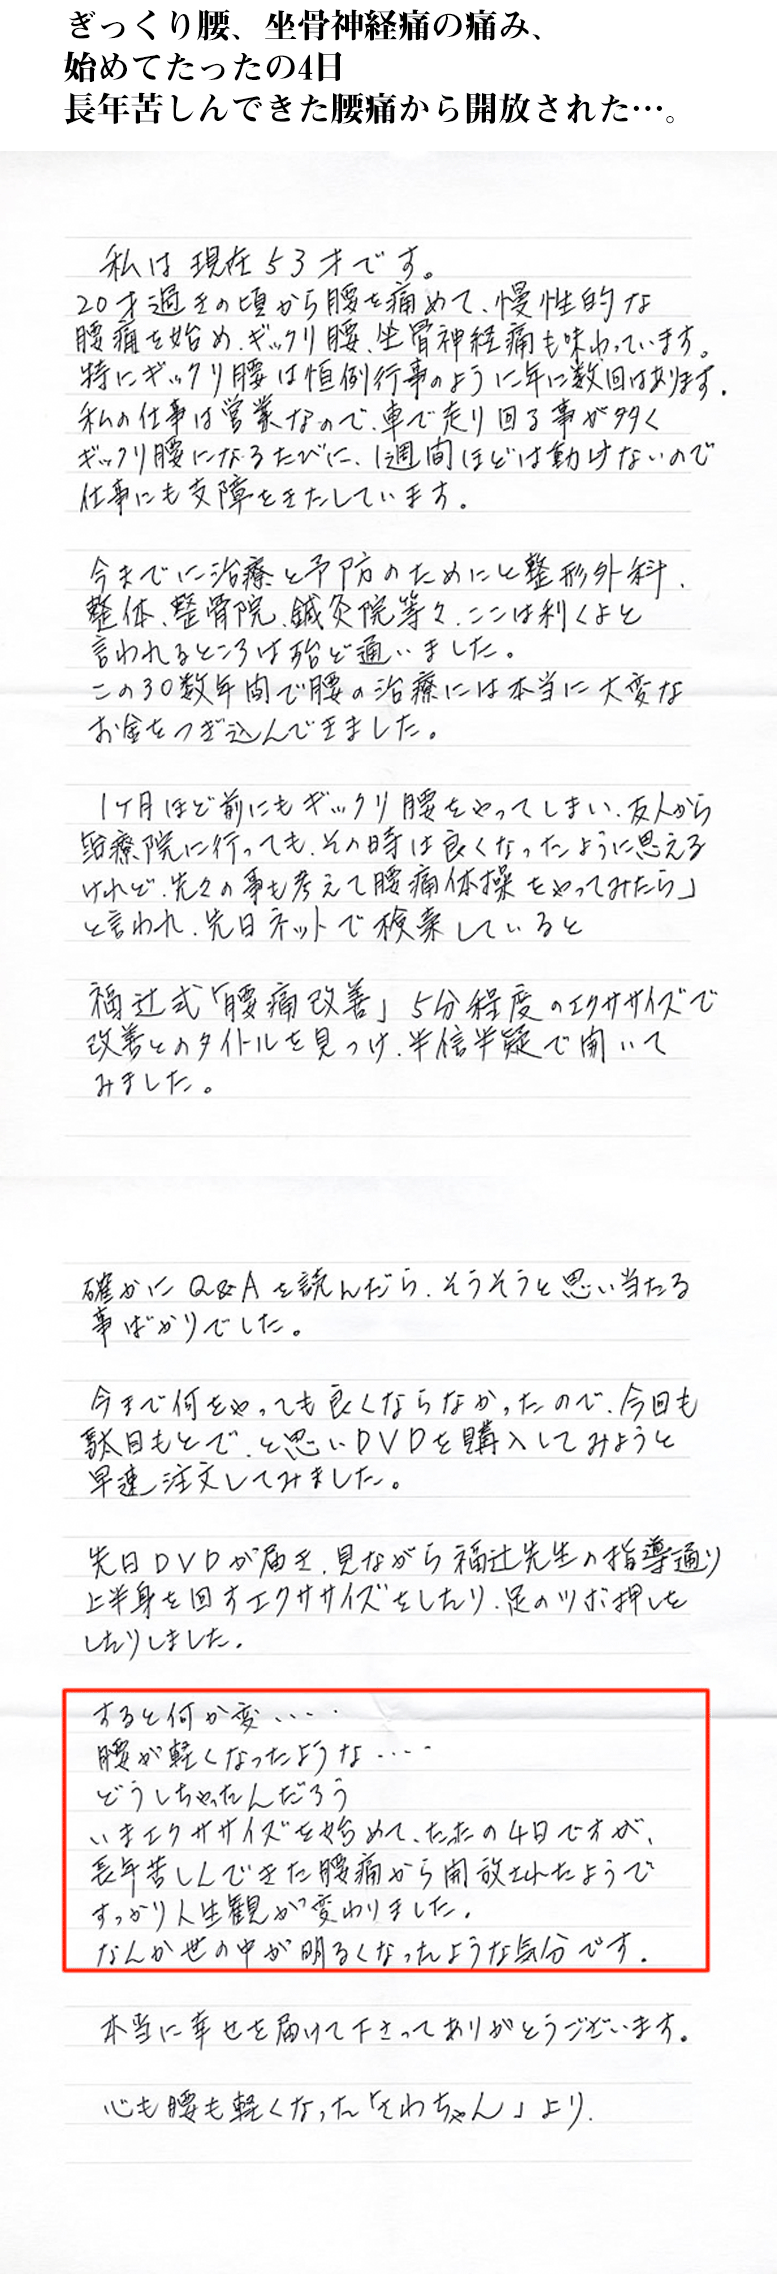 ぎっくり腰、坐骨神経痛の痛み、
始めてたったの4日
長年苦しんできた腰痛から開放された…。
私は現在53才です。
20才過ぎの頃から腰を痛めて、慢性的な
腰痛を始め、ギックリ腰、坐骨神経痛も味わっています。
特にギックリ腰は恒例行事のように年に数回はあります。
私の仕事は営業なので、車で走り回る事が多く
ギックリ腰になるたびに、1週間ほどは動けないので
仕事にも支障をきたしています。
今までに治療と予防のためにと整形外科、
整体、整骨院、鍼灸院等々、ここは利くよと
言われるところは殆ど通いました。
この30数年間で腰の治療には本当に大変な
お金をつぎ込んできました。
1ヶ月ほど前にもギックリ腰をやってしまい、友人から
治療院に行っても、その時は良くなったように思える
けれど、先々の事も考えて腰痛体操をやってみたら」
と言われ、先日ネットで検索していると
福辻式「腰痛改善」5分程度のエクササイズで
改善とのタイトルを見つけ、半信半疑で開いて
みました。
確かにQ&Aを読んだら、そうそうと思い当たる
事ばかりでした。
今まで何をやっても良くならなかったので、今回も
駄目もとで、と思いDVDを購入してみようと
早速注文してみました。
先日DVDが届き、見ながら福辻先生の指導通り
上半身を回すエクササイズをしたり、足のツボ押しを
したりしました。
すると何か変‥‥
腰が軽くなったような‥‥
どうしちゃったんだろう
いまエクササイズを始めて、たったの4日ですが、
長年苦しんできた腰痛から開放されたようで
すっかり人生観が変わりました。
なんか世の中が明るくなったような気分です。
本当に幸せを届けて下さってありがとうございます。
心も腰も軽くなった「さわちゃん」より.